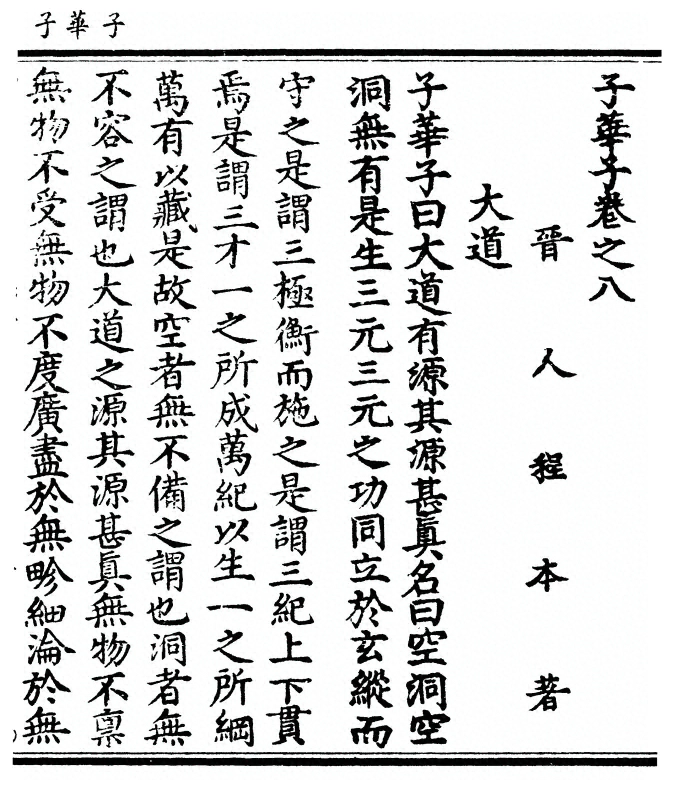 子華子
子華子卷之八
晉人程本著
大道
子華子曰大道有源其源甚眞名曰空洞空
洞無有是生三元三元之功同立於玄縱而
守之是謂三極衡而施之是謂三紀上下貫
焉是謂三才一之所成萬紀以生一之所綱
萬有以藏是故空者無不備之謂也洞者無
不容之謂也大道之源其源甚眞無物不禀
無物不受無物不度廣盡於無畛細淪於無